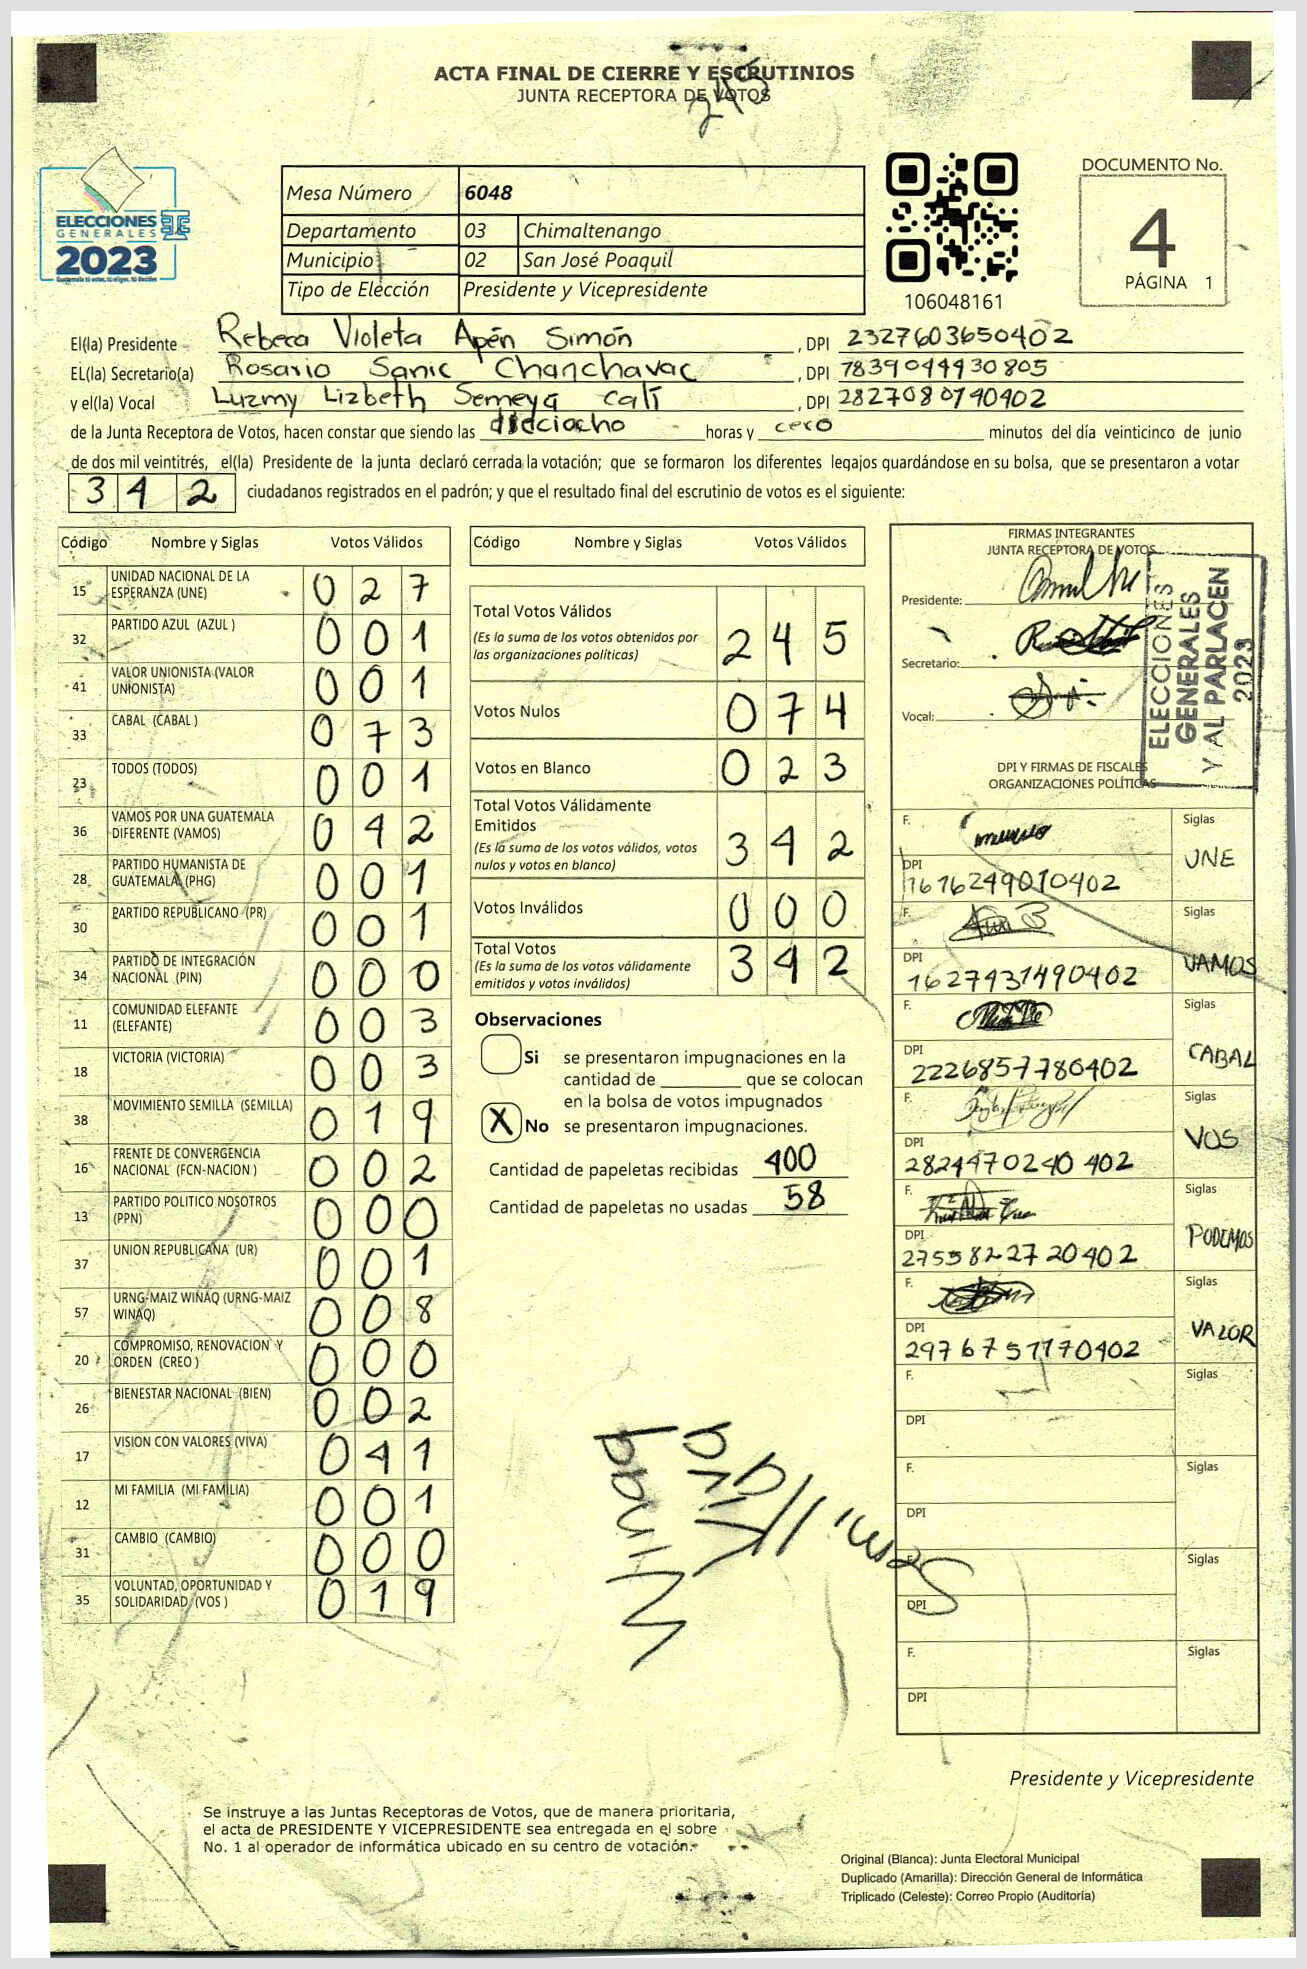 ACTA FINAL DE CIERRE Y ESCRUTINIOS
JUNTA RECEPTORA DE VOTOS
245
ELECCIONES
GENERALES
2023
Mesa Número 6048
Departamento 03 Chimaltenango
Municipio 02 San José Poaquil
Tipo de Elección Presidente y Vicepresidente
106048161
DOCUMENTO No.
4
PÁGINA 1
El(la) Presidente Rebeca Violeta Apén Simón , DPI 2327603650402
EL(la) Secretario(a) Rosario Sanic Chanchavac , DPI 7839044430805
y el(la) Vocal Luzmy Lizbeth Semeya Calí , DPI 2827080740402
de la Junta Receptora de Votos, hacen constar que siendo las dieciocho horas y cero minutos del día veinticinco de junio
de dos mil veintitrés, el(la) Presidente de la junta declaró cerrada la votación; que se formaron los diferentes legajos guardándose en su bolsa, que se presentaron a votar
342 ciudadanos registrados en el padrón; y que el resultado final del escrutinio de votos es el siguiente:
Código Nombre y Siglas Votos Válidos
15 UNIDAD NACIONAL DE LA ESPERANZA (UNE) 027
32 PARTIDO AZUL (AZUL ) 001
41 VALOR UNIONISTA (VALOR UNIONISTA) 001
33 CABAL (CABAL ) 073
23 TODOS (TODOS) 001
36 VAMOS POR UNA GUATEMALA DIFERENTE (VAMOS) 042
28 PARTIDO HUMANISTA DE GUATEMALA (PHG) 001
30 PARTIDO REPUBLICANO (PR) 001
34 PARTIDO DE INTEGRACIÓN NACIONAL (PIN) 000
11 COMUNIDAD ELEFANTE (ELEFANTE) 003
18 VICTORIA (VICTORIA) 003
38 MOVIMIENTO SEMILLA (SEMILLA) 019
16 FRENTE DE CONVERGENCIA NACIONAL (FCN-NACION ) 002
13 PARTIDO POLITICO NOSOTROS (PPN) 000
37 UNION REPUBLICANA (UR) 001
57 URNG-MAIZ WINAQ (URNG-MAIZ WINAQ) 008
20 COMPROMISO, RENOVACION Y ORDEN (CREO ) 000
26 BIENESTAR NACIONAL (BIEN) 002
17 VISION CON VALORES (VIVA) 041
12 MI FAMILIA (MI FAMILIA) 001
31 CAMBIO (CAMBIO) 000
35 VOLUNTAD, OPORTUNIDAD Y SOLIDARIDAD (VOS ) 019
Código Nombre y Siglas Votos Válidos
Total Votos Válidos 245
(Es la suma de los votos obtenidos por
las organizaciones políticas)
Votos Nulos 074
Votos en Blanco 023
Total Votos Válidamente
Emitidos 342
(Es la suma de los votos válidos, votos
nulos y votos en blanco)
Votos Inválidos 000
Total Votos 342
(Es la suma de los votos válidamente
emitidos y votos inválidos)
Observaciones
Si se presentaron impugnaciones en la
cantidad de ________ que se colocan
en la bolsa de votos impugnados
X No se presentaron impugnaciones.
Cantidad de papeletas recibidas 400
Cantidad de papeletas no usadas 58
FIRMAS INTEGRANTES
JUNTA RECEPTORA DE VOTOS
Presidente:
Secretario:
Vocal:
ELECCIONES
GENERALES
Y AL PARLACEN
2023
DPI Y FIRMAS DE FISCALES
ORGANIZACIONES POLÍTICAS
F. Siglas
DPI 1616249010402 UNE
F. Siglas
DPI 1627431490402 VAMOS
F. Siglas
DPI 2226857780402 CABAL
F. Siglas
DPI 2824470240402 VOS
F. Siglas
DPI 2755822720402 PODEMOS
F. Siglas
DPI 2976757770402 VALOR
F. Siglas
DPI
F. Siglas
DPI
F. Siglas
DPI
F. Siglas
DPI
Semilla
Viva
Winaq
Presidente y Vicepresidente
Se instruye a las Juntas Receptoras de Votos, que de manera prioritaria,
el acta de PRESIDENTE Y VICEPRESIDENTE sea entregada en el sobre
No. 1 al operador de informática ubicado en su centro de votación.
Original (Blanca): Junta Electoral Municipal
Duplicado (Amarilla): Dirección General de Informática
Triplicado (Celeste): Correo Propio (Auditoría)